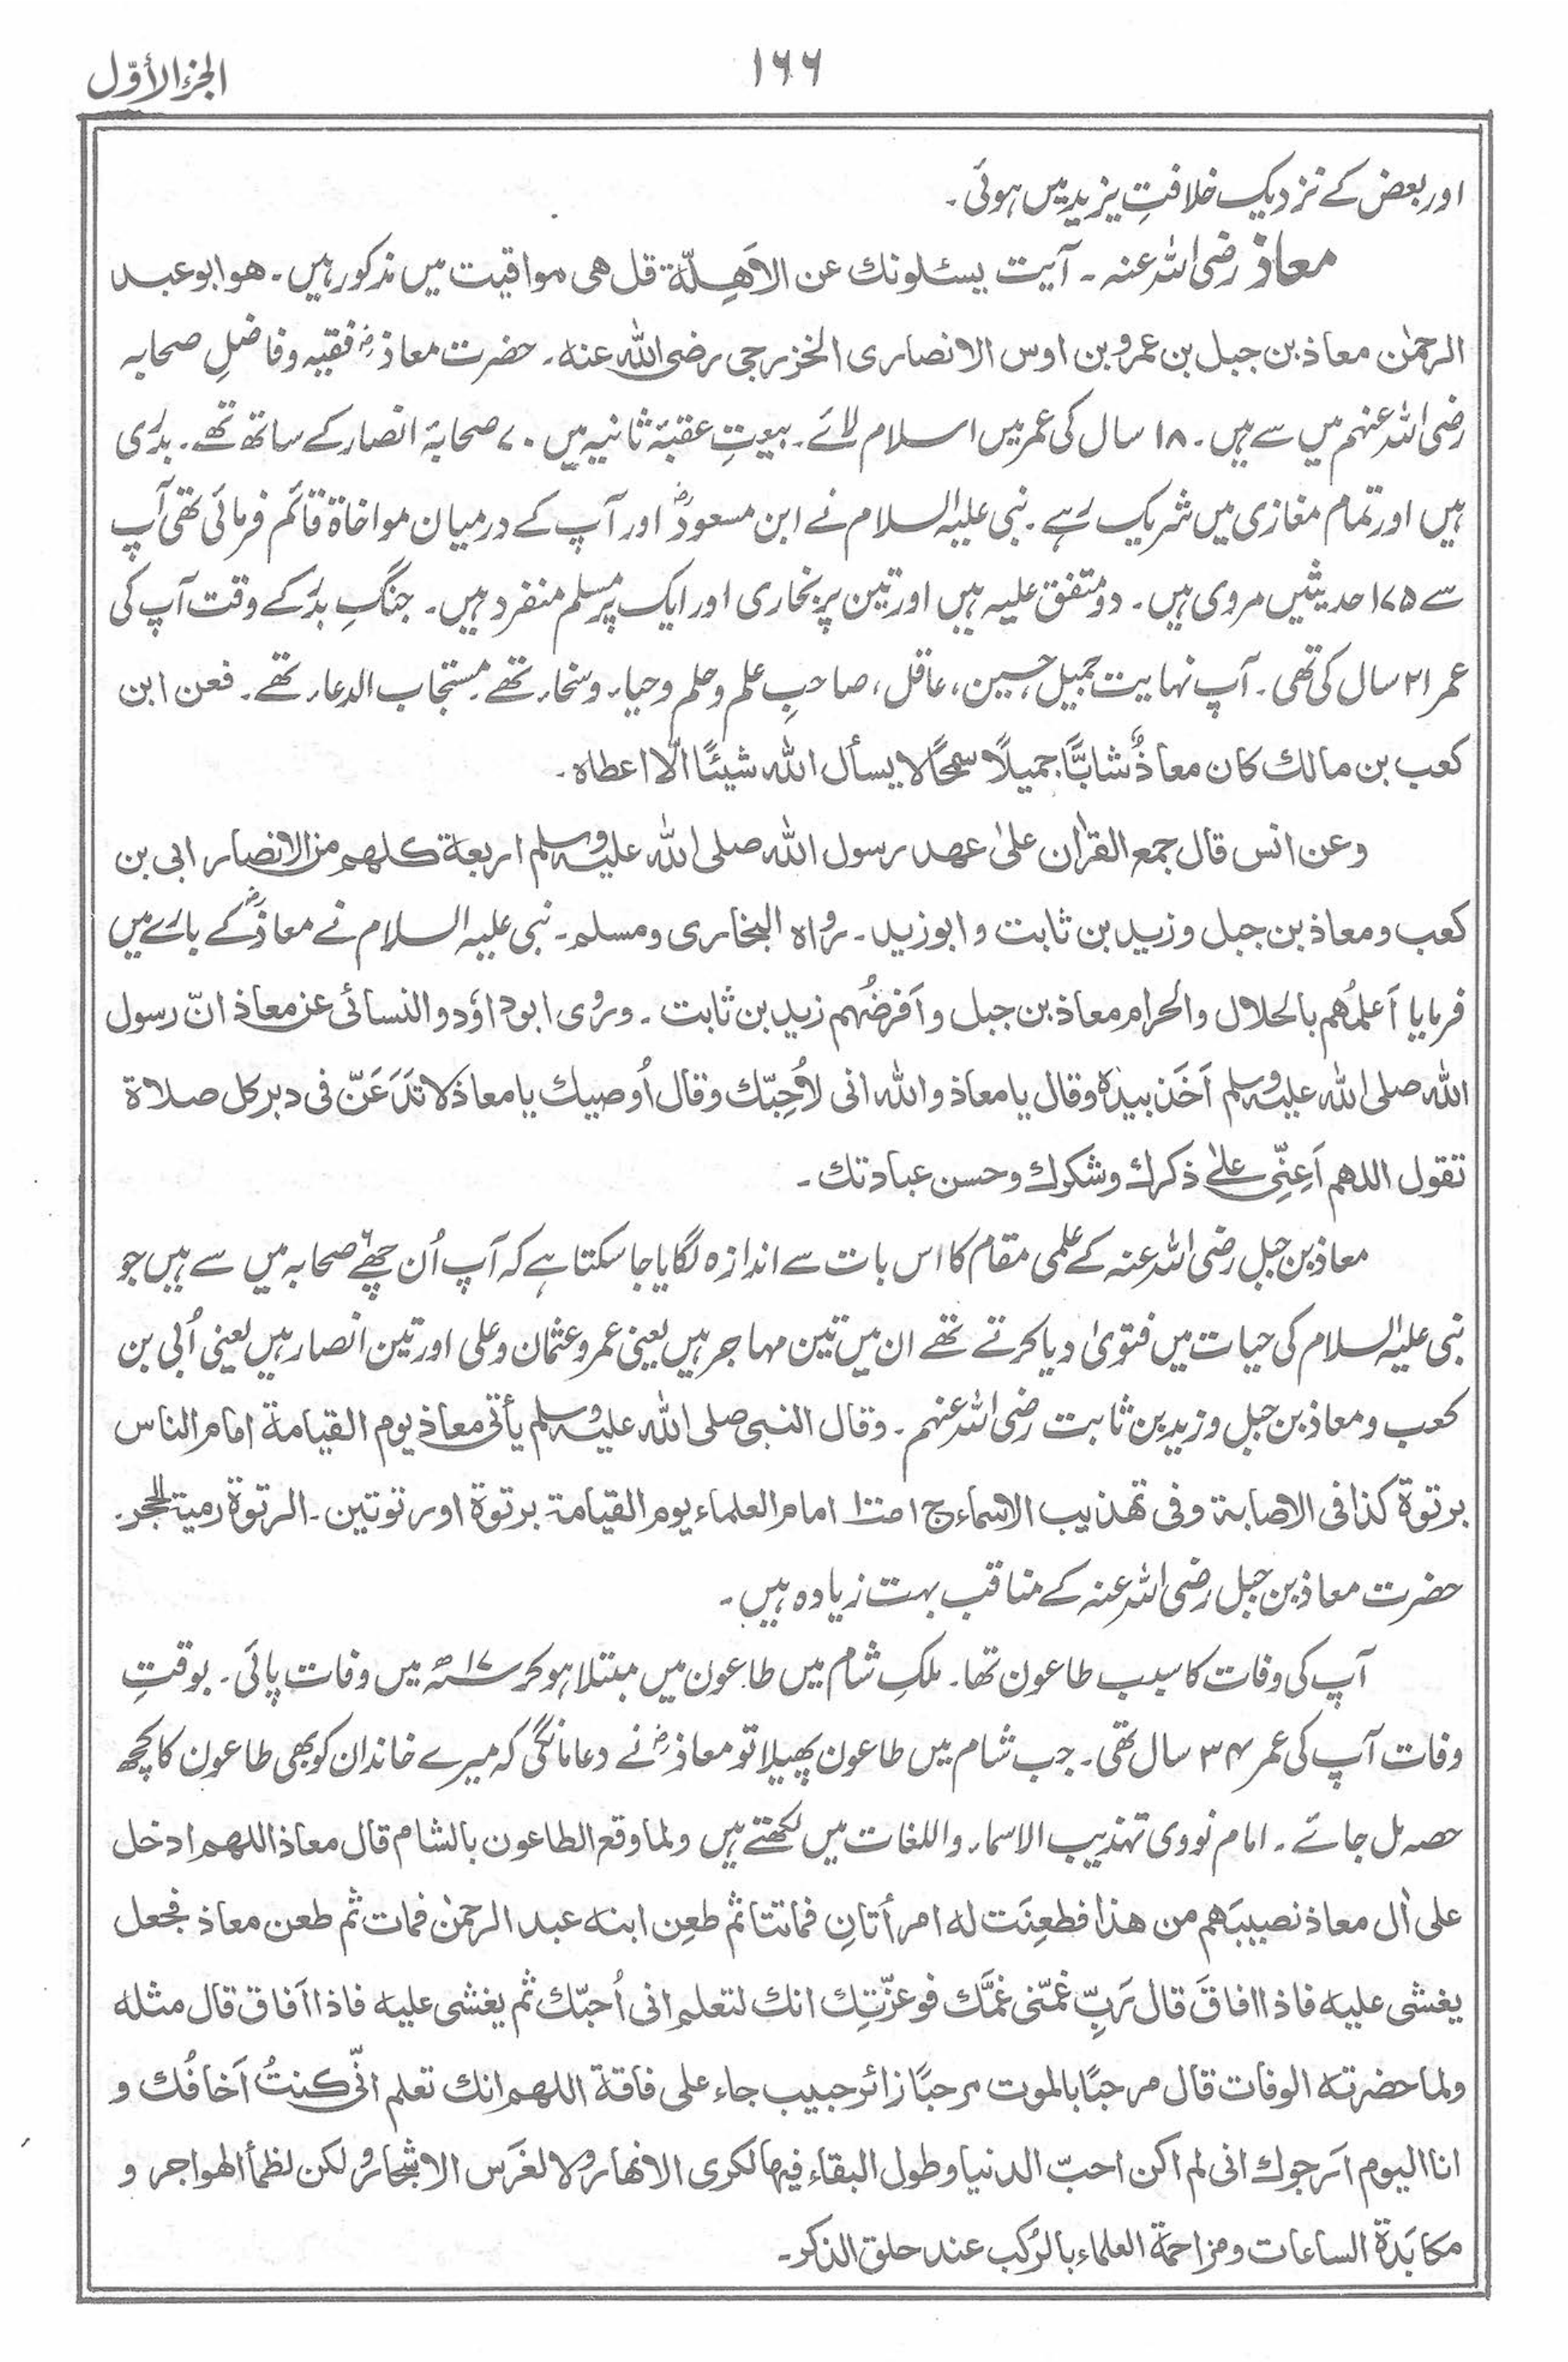 الجزء الأوّل
١٦٦
اور بعض کے نزدیک خلافتِ یزید میں ہوئی۔
معاذ رضی اللہ عنہ۔ آیت یسئلونك عن الاَھِلّة قل ھی مواقیت میں مذکور ہیں۔ ھو ابو عبد
الرحمٰن معاذ بن جبل بن عمرو بن اوس الانصاری الخزرجی رضی اللہ عنہ۔ حضرت معاذؓ فقیہ و فاضلِ صحابہ
رضی اللہ عنہم میں سے ہیں۔ ۱۸ سال کی عمر میں اسلام لائے۔ بیعتِ عقبۂ ثانیہ میں ۷۰ صحابۂ انصار کے ساتھ تھے۔ بدری
ہیں اور تمام مغازی میں شریک رہے۔ نبی علیہ السلام نے ابن مسعودؓ اور آپ کے درمیان مواخاۃ قائم فرمائی تھی آپ
سے ۱۷۵ حدیثیں مروی ہیں۔ دو متفق علیہ ہیں اور تین پر بخاری اور ایک پر مسلم منفرد ہیں۔ جنگِ بدر کے وقت آپ کی
عمر ۲۱ سال کی تھی۔ آپ نہایت جمیل، حسین، عاقل، صاحبِ علم و حلم و حیار و سخار تھے۔ مستجاب الدعار تھے۔ فعن ابن
کعب بن مالك کان معاذٌ شابًّا جمیلًا سمحًا لا یسأل اللہ شیئًا الّا اعطاہ۔
وعن انس قال جمع القراٰن علیٰ عھد رسول اللہ صلی اللہ علیہ وسلم اربعة کلھم من الانصار ابی بن
کعب و معاذ بن جبل و زید بن ثابت و ابو زید۔ رواہ البخاری و مسلم۔ نبی علیہ السلام نے معاذؓ کے بارے میں
فرمایا اَعلمُھم بالحلال والحرام معاذ بن جبل واَفرضُھم زید بن ثابت۔ و روٰی ابو داؤد والنسائی عن معاذ انّ رسول
اللہ صلی اللہ علیہ وسلم اَخَذ بیدہٖ وقال یا معاذ واللہ انی لاُحِبّك وقال اُوصیك یا معاذ لا تَدَعَنّ فی دبر کل صلاة
تقول اللھم اَعِنِّی علیٰ ذکرك وشکرك وحسن عبادتك۔
معاذ بن جبل رضی اللہ عنہ کے علمی مقام کا اس بات سے اندازہ لگایا جا سکتا ہے کہ آپ اُن چھ صحابہ میں سے ہیں جو
نبی علیہ السلام کی حیات میں فتویٰ دیا کرتے تھے ان میں تین مہاجر ہیں یعنی عمر و عثمان و علی اور تین انصار ہیں یعنی اُبی بن
کعب و معاذ بن جبل و زید بن ثابت رضی اللہ عنہم۔ وقال النبی صلی اللہ علیہ وسلم یأتی معاذ یوم القیامة امام الناس
برتوة کذا فی الاصابة وفی تھذیب الاسماء ج ۱ امام العلماء یوم القیامة برتوة او رتوتین۔ الرتوة رمیة الحجر۔
حضرت معاذ بن جبل رضی اللہ عنہ کے مناقب بہت زیادہ ہیں۔
آپ کی وفات کا سبب طاعون تھا۔ ملکِ شام میں طاعون میں مبتلا ہو کر ۱۷ھ میں وفات پائی۔ بوقتِ
وفات آپ کی عمر ۳۴ سال تھی۔ جب شام میں طاعون پھیلا تو معاذؓ نے دعا مانگی کہ میرے خاندان کو بھی طاعون کا کچھ
حصہ مل جائے۔ امام نووی تہذیب الاسمار واللغات میں لکھتے ہیں ولما وقع الطاعون بالشام قال معاذ اللھم ادخل
علی اٰل معاذ نصیبَھم من ھذا فطعِنَت لہ امرأتانِ فماتتا ثم طعِن ابنہ عبد الرحمٰن فمات ثم طعن معاذ فجعل
یغشی علیہ فاذا افاقَ قال رَبِّ غمّنی غمَّك فوعزّتِك انك لتعلم انی اُحبّك ثم یغشی علیہ فاذا اَفاق قال مثلہ
ولما حضرتہ الوفات قال مرحبًا بالموت مرحبًا زائر حبیب جاء علی فاقة اللھم انك تعلم انّی کنتُ اَخافُك و
انا الیوم اَرجوك انی لم اکن احبّ الدنیا وطول البقاء فیھا لکری الانھار ولا لغَرس الاشجار ولکن لظمأ الھواجر و
مکابَدة الساعات ومزاحمة العلماء بالرکب عند حلق الذکر۔